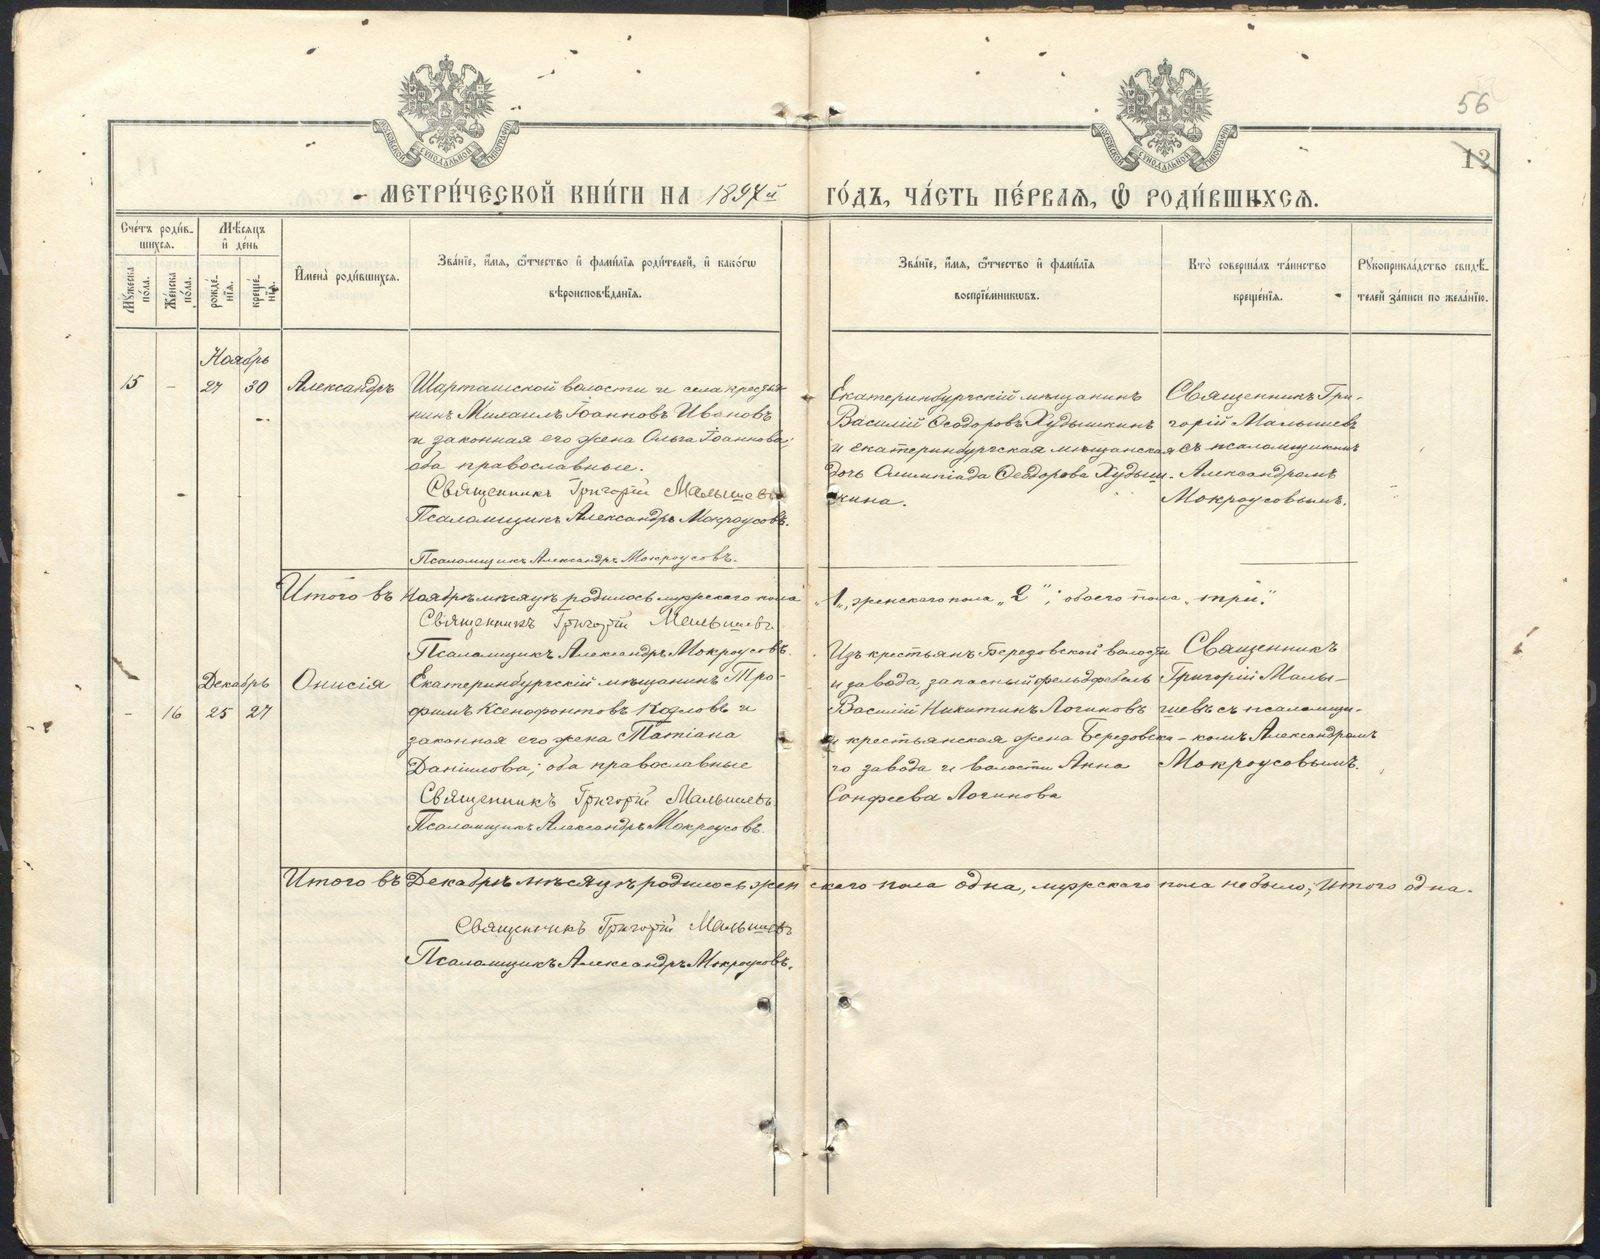 56
12
МОСКОВСКОЙ СУНОДАЛЬНОЙ ТИПОГРАФІИ
МОСКОВСКОЙ СУНОДАЛЬНОЙ ТИПОГРАФІИ
МЕТРИ́ЧЕСКОЙ КНИ́ГИ НА 1897й ГО́ДЪ, ЧА́СТЬ ПЕ́РВАѦ, Ѽ РОДИ́ВШИХСѦ.
Сче́тъ роди́в-
шихся.
Мѣ́сяцъ
и҆ де́нь
Мꙋ́жеска по́ла.
Же́нска по́ла.
рожде́-нїѧ.
креще́-нїѧ.
И҆мена̀ роди́вшихся.
Зва́нїе, и҆́мѧ, ѻ҆́тчество и҆ фами́лїѧ роди́телей, и҆ како́гѡ
вѣроисповѣ́данїѧ.
Зва́нїе, и҆́мѧ, ѻ҆́тчество и҆ фами́лїѧ
воспрїе́мникѡвъ.
Кто̀ соверша́лъ та́инство
креще́нїѧ.
Рꙋкоприкла́дство свидѣ́-
телей за́писи по жела́нїю.
Ноябрь
15 - 27 30 Александръ
Шарташской волости и села крестья-
нинъ Михаилъ Іоанновъ Ивановъ
и законная его жена Ольга Іоаннова;
оба православные.
Священникъ Григорій Малышевъ
Псаломщикъ Александръ Мокроусовъ.
Псаломщикъ Александръ Мокроусовъ.
Екатеринбургскій мѣщанинъ
Василій Ѳеодоровъ Худышкинъ
и екатеринбургская мѣщанская
дочь Олимпіада Ѳеодорова Худыш-
кина.
Священникъ Гри-
горій Малышевъ
съ псаломщикомъ
Александромъ
Мокроусовымъ.
Итого въ Ноябрѣ мѣсяцѣ родилось мужскаго пола „1„, женскаго пола „2"; обоего пола „три".
Священникъ Григорій Малышевъ
Псаломщикъ Александръ Мокроусовъ.
Декабрь
- 16 25 27 Онисія
Екатеринбургскій мѣщанинъ Тро-
фимъ Ксенофонтовъ Козловъ и
законная его жена Татіана
Даніилова; оба православные
Священникъ Григорій Малышевъ
Псаломщикъ Александръ Мокроусовъ.
Изъ крестьянъ Березовской волости
и завода, запасный фельдфебель
Василій Никитинъ Логиновъ
и крестьянская жена Березовска-
го завода и волости Анна
Логинова
Священникъ
Григорій Малы-
шевъ съ псаломщи-
комъ Александромъ
Мокроусовымъ.
Итого въ Декабрѣ мѣсяцѣ родилось женскаго пола одна, мужскаго пола не было; итого одна.
Священникъ Григорій Малышевъ
Псаломщикъ Александръ Мокроусовъ.